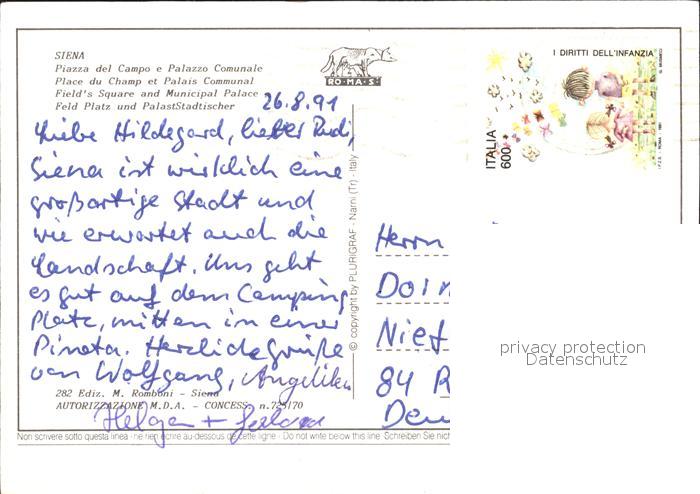 SIENA
Piazza del Campo e Palazzo Comunale
Place du Champ et Palais Communal
Field's Square and Municipal Palace
Feld Platz und PalastStadtischer
RO·MA·S
I DIRITTI DELL'INFANZIA
ITALIA
600
26.8.91
Liebe Hildegard, lieber Rudi,
Siena ist wirklich eine
großartige Stadt und
wie erwartet auch die
Landschaft. Uns geht
es gut auf dem Camping
Platz, mitten in einer
Pineta. Herzliche Grüße
von Wolfgang, Angelika
Helga +
© copyright by PLURIGRAF - Narni (Tr) - Italy
Herrn
Doin
Nief
84 R
Deu
privacy protection
Datenschutz
282 Ediz. M. Romboni - Siena
AUTORIZZAZIONE M.D.A. - CONCESS. n.725/70
Non scrivere sotto questa linea - ne rien écrire au-dessous de cette ligne - Do not write below this line. Schreiben Sie nich